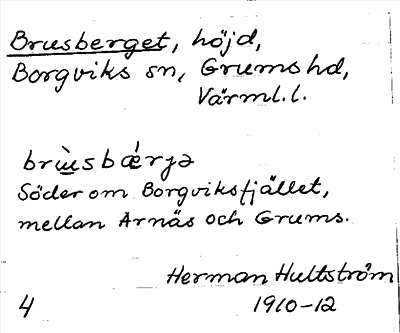 Brusberget, höjd,
Borgviks sn, Grums hd,
Värml. l.
brùsbǽrjə
Söder om Borgviksfjället,
mellan Arnäs och Grums.
Herman Hultström
4 1910-12